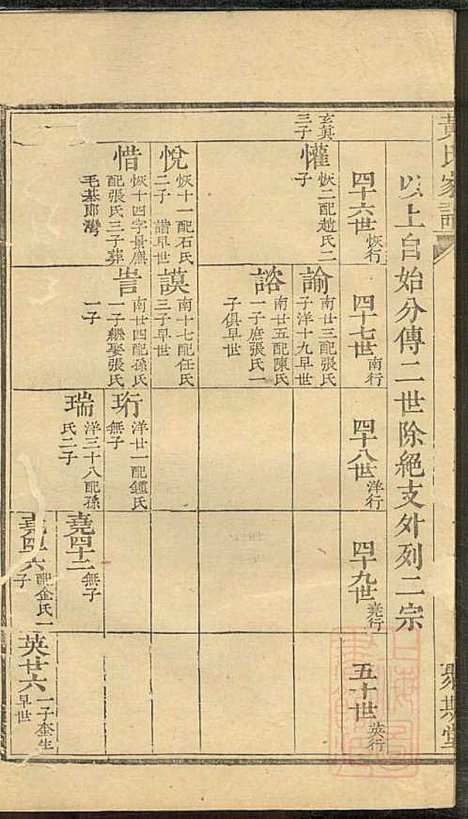 黄氏家譜
聚其堂
以上自始分傳二世除絕支外列二宗
四十六世恢行
四十七世南行
四十八世洋行
四十九世堯行
五十世英行
玄真三子
懽恢二配趙氏二子
諭南廿三配張氏一子洋十九早世
諮南廿五配陳氏一子庶張氏一子俱早世
悅恢十一配石氏二子譜早世
謨南十七配任氏三子早世
惜恢十四字景廉配張氏三子葬毛基郎灣
訔南廿四配孫氏一子繼娶張氏一子
珩洋廿一配鍾氏無子
瑞洋三十八配孫氏二子
堯四十二無子
堯四六配金氏一子
英廿六一子奎生早世